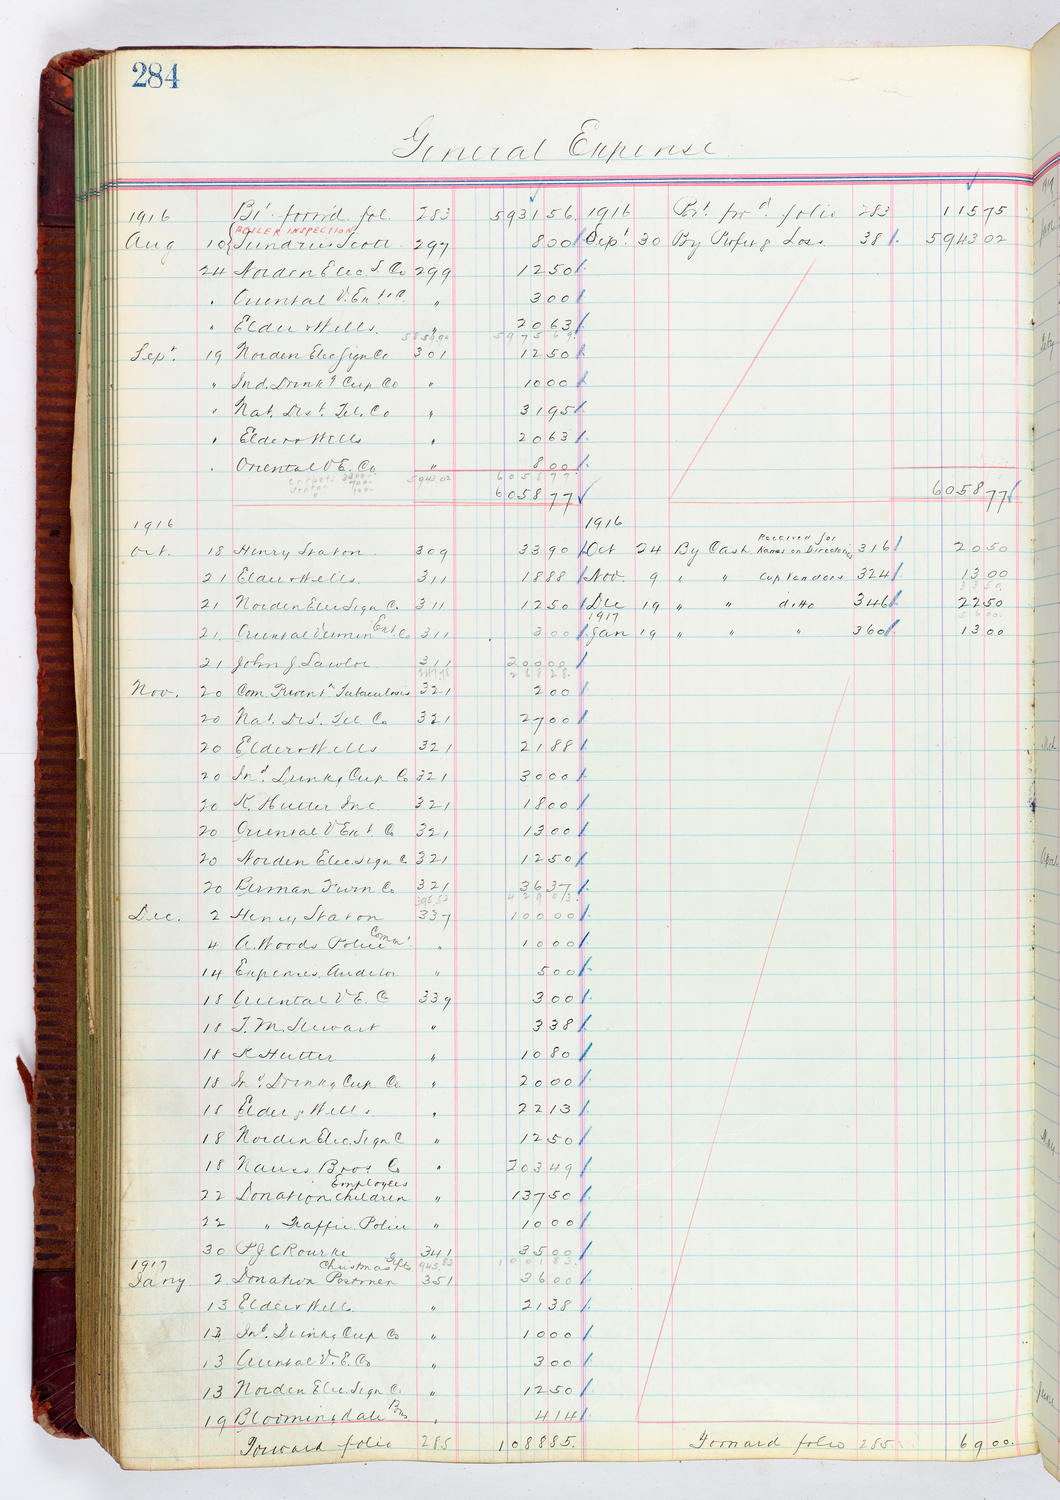 284
General Expense
1916 Bt. forrd fol. 283 5931 56. 1916 Brt. frd. folio 283 115 75
BOILER INSPECTION
Aug 10 Sundries Scott 297 8 00 Sept. 30 By Profit & Loss 38 5943 02
24 Norden Elec. S. Co 299 12 50
" Oriental V. Ext. Co. " 3 00
" Elder & Wells. " 20 63
5859.90 5975 69.
Sept. 19 Norden Elec Sign Co 301 12 50
" Ind. Drinkg Cup Co " 10 00
" Nat. Dist. Tel. Co " 31 95
" Elder & Wells " 20 63
" Oriental V E. Co " 8 00
5943.02 6058 77.
6058 77 6058 77
1916 1916
Oct. 18 Henry Staton 309 33 90 Oct 24 By Cash Received for Names on Directories 316 20 50
21 Elder & Wells. 311 18 88 Nov. 9 " " Cup Vendors 324 13 00
21 Norden Elec Sign C. 311 12 50 Dec 19 " " ditto 346 22 50
1917
21. Oriental Vermin Ext. Co 311 3 00 Jan 19 " " " 360 13 00
21 John J Lawlor 311 200 00
247.78 268 28.
Nov. 20 Com. Prevent'n Tuberculosis 321 2 00
20 Nat. Dist. Tel Co 321 27 00
20 Elder & Wells 321 21 88
20 Ind. Drinkg Cup Co 321 30 00
20 K. Hutter Inc. 321 18 00
20 Oriental V Ext. Co 321 13 00
20 Norden Elec. Sign C 321 12 50
20 Berman Furn Co 321 36 37
395.53 429 03.
Dec. 2 Henry Staton 337 100 00
4 A. Woods Police Commr. " 10 00
14 Expenses Auditor " 5 00
18 Oriental V E. C 339 3 00
18 T. M. Stewart " 3 38
18 K Hutter " 10 80
18 Ind. Drinkg Cup Co. " 20 00
18 Elder & Wells " 22 13
18 Norden Elec. Sign C " 12 50
18 Naures Bros Co " 203 49
22 Donation Employees children " 137 50
22 " Traffic Police " 10 00
30 P. J. C Rourke 341 35 00
943.83 1001 83.
1917
Jany 2. Donation Postmen Christmas Gifts 351 36 00
13 Elder & Wells. " 21 38
13 Ind. Drinkg Cup Co " 10 00
13 Oriental V. E. Co " 3 00
13 Norden Elec. Sign C. " 12 50
19 Bloomingdale Bros " 4 14
Forward folio 285 1088 85. Forward folio 285 69 00.